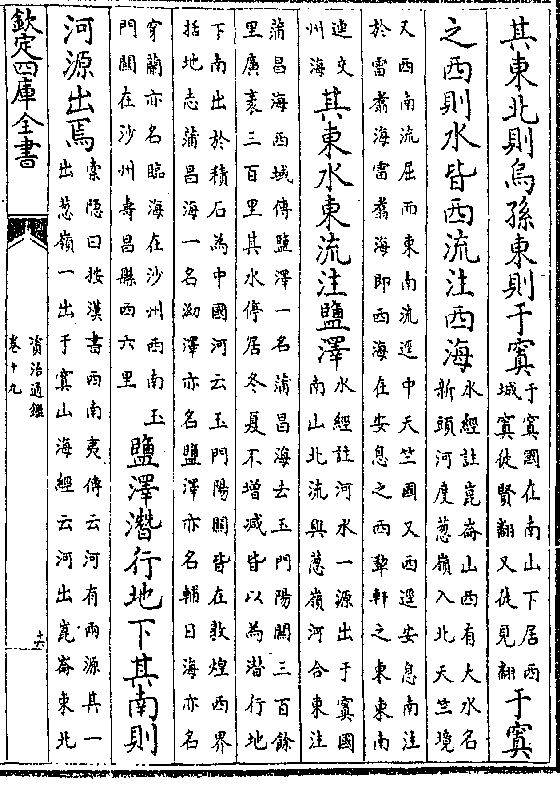 其東北則烏孫東則于寘
于寘國在南山下居西
城寘徒賢翻又徒見翻
于寘
之西則水皆西流注西海
水經註崑崙山西有大水名
新頭河度葱嶺入北天竺境
又西南流屈而東南流逕中天竺國又西逕安息南注
於雷翥海雷翥海即西海在安息之西犂軒之東東南
連交
州海
其東水東流注鹽澤
水經註河水一源出于寘國
南山北流與葱嶺河合東注
蒲昌海西域傳鹽澤一名蒲昌海去玉門陽關三百餘
里廣袤三百里其水停居冬夏不增減皆以為潛行地
下南出於積石為中國河云玉門陽關皆在敦煌西界
括地志蒲昌海一名泑澤亦名鹽澤亦名輔日海亦名
穿蘭亦名臨海在沙州西南玉
門關在沙州壽昌縣西六里
鹽澤潛行地下其南則
河源出焉
索隱曰按漢書西南夷傳云河有兩源其一
出葱嶺一出于寘山海經云河出崑崙東北
欽定四庫全書
資治通鑑
卷十九
十六